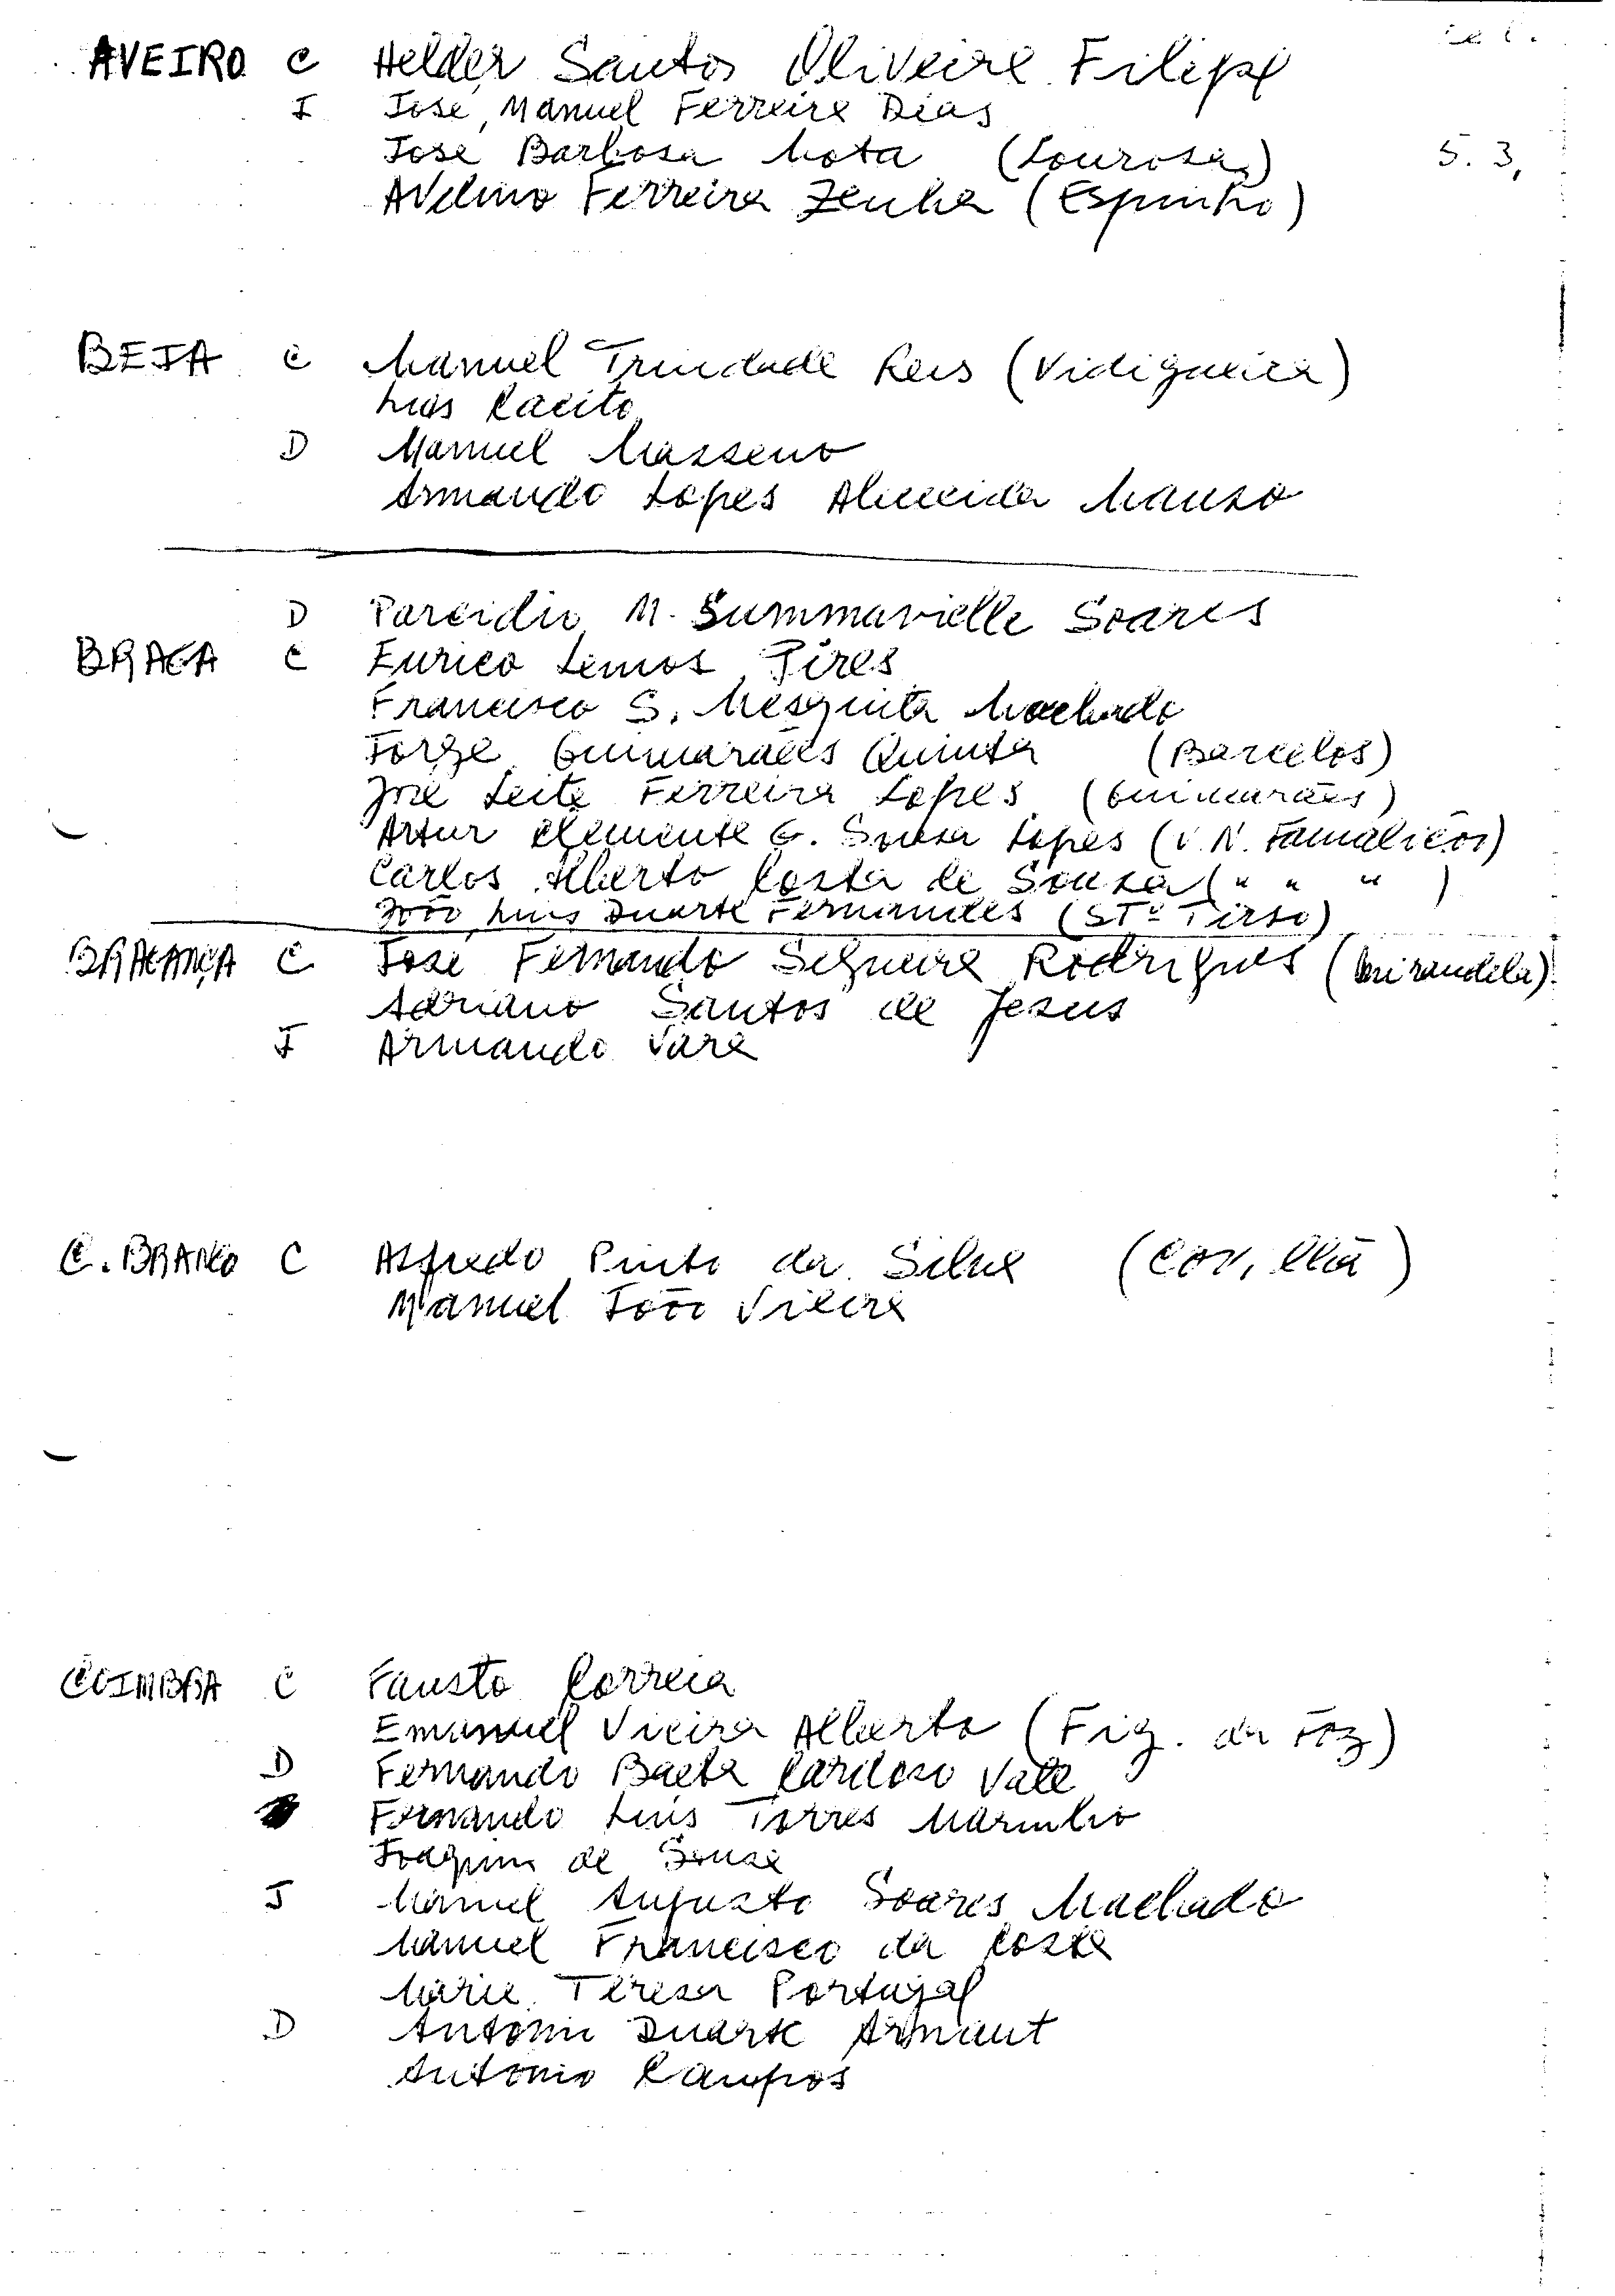 AVEIRO C Helder Santos Oliveira Filipe
J José Manuel Ferreira Dias
José Barbosa Mota (Lourosa) 5.3,
Avelino Ferreira Zenha (Espinho)
BEJA C Manuel Trindade Reis (Vidigueira)
Luís Cacito
D Manuel Masseno
Armando Lopes Almeida Manso
D Parcidio M. Summavielle Soares
BRAGA C Eurico Lemos Pires
Francisco S. Mesquita Machado
Jorge Guimarães Quinta (Barcelos)
José Leite Ferreira Lopes (Guimarães)
Artur Clemente G. Sousa Lopes (V. N. Famalicão)
Carlos Alberto Costa de Sousa (" " ")
João Luís Duarte Fernandes (Stº Tirso)
BRAGANÇA C José Fernando Segueira Rodrigues (Mirandela)
Adriano Santos de Jesus
J Armando Vara
C. BRANCO C Alfredo Pinto da Silva (Covilhã)
Manuel João Vieira
COIMBRA C Fausto Correia
Emanuel Vieira Alberto (Fig. da Foz)
D Fernando Baeta Cardoso Vale
Fernando Luís Torres Marinho
Joaquim de Sousa
J Manuel Augusto Soares Machado
Manuel Francisco da Costa
Maria Teresa Portugal
D António Duarte Arnaut
António Campos